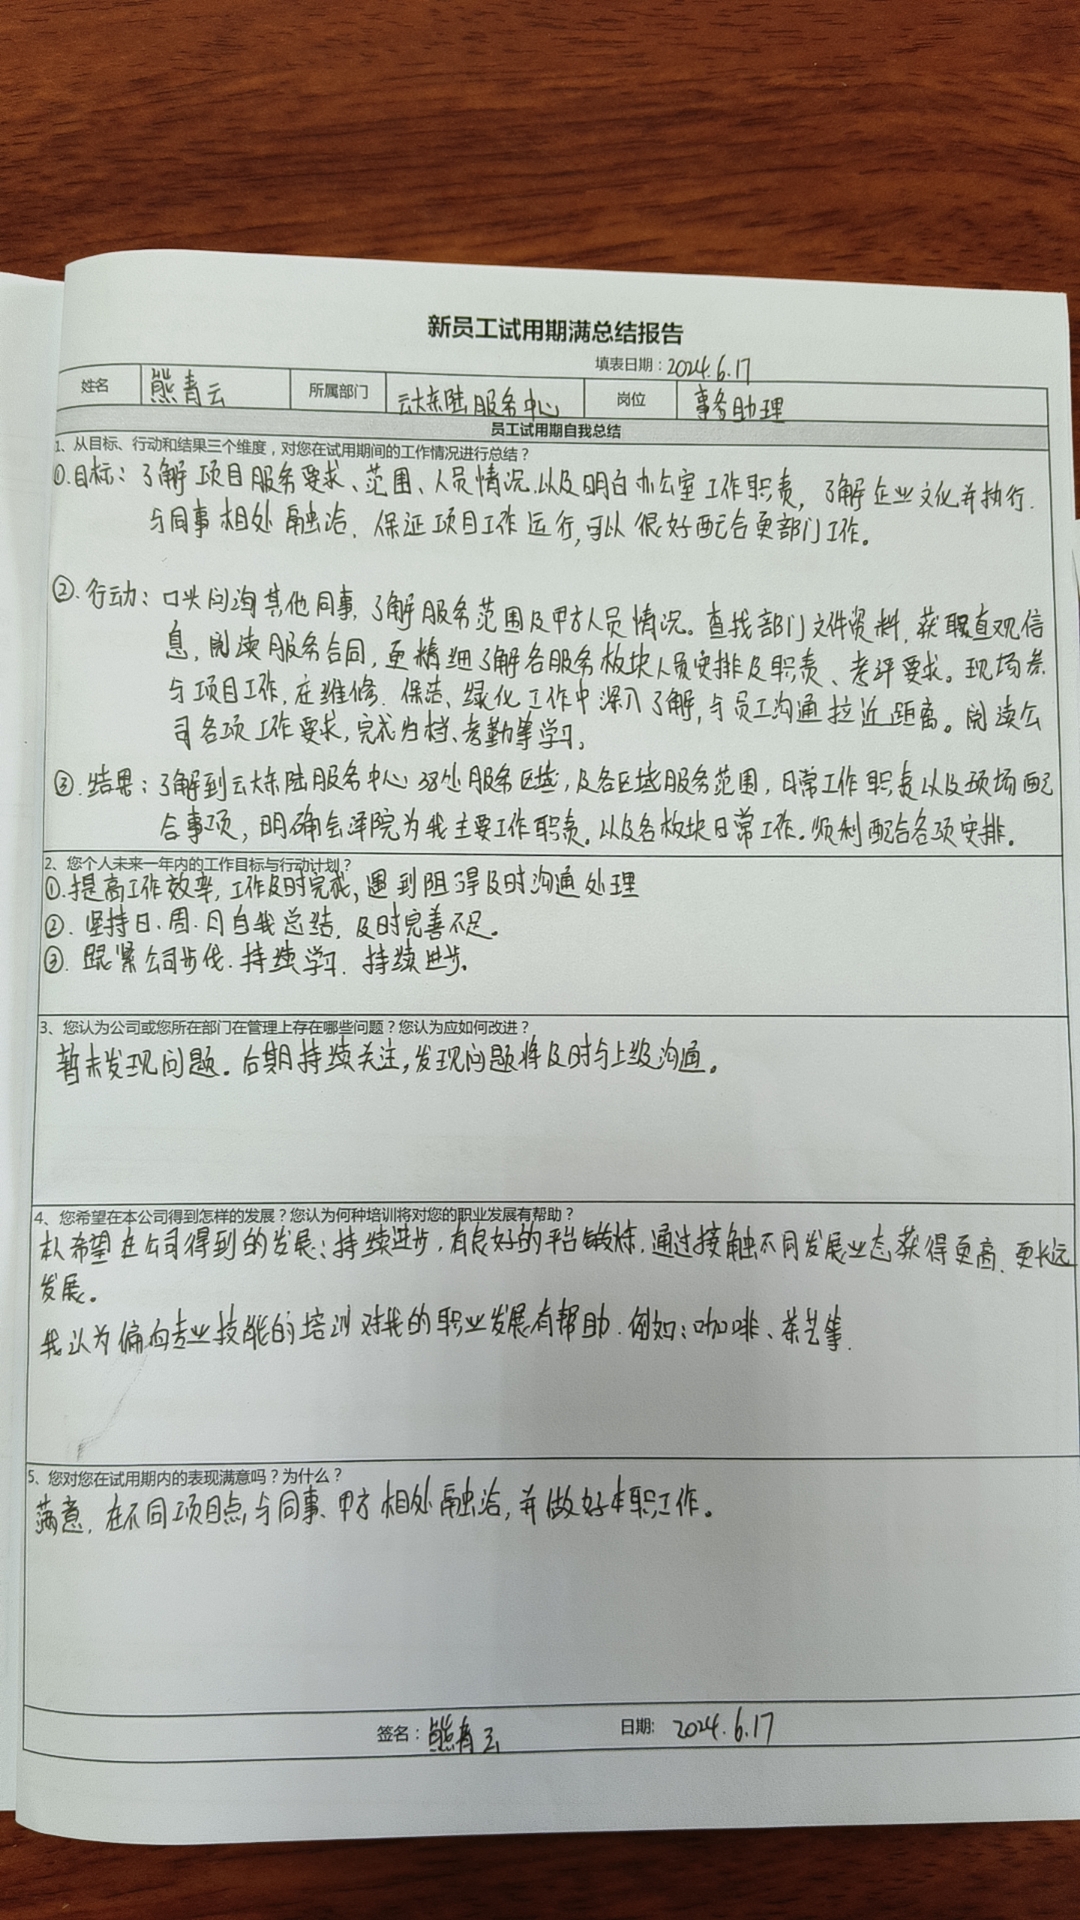 新员工试用期满总结报告
填表日期：2024.6.17
姓名 熊青云 所属部门 云大东陆服务中心 岗位 事务助理
员工试用期自我总结
1、从目标、行动和结果三个维度，对您在试用期间的工作情况进行总结？
①.目标：了解项目服务要求、范围、人员情况以及明白办公室工作职责，了解企业文化并执行.
与同事相处融洽.保证项目工作运行,可以很好配合更部门工作。
②.行动：口头问询其他同事,了解服务范围及甲方人员情况。查找部门文件资料,获取直观信
息,阅读服务合同,更精细了解各服务板块人员安排及职责、考评要求。现场参
与项目工作,在维修、保洁、绿化工作中深入了解,与员工沟通拉近距离。阅读公
司各项工作要求,完成归档、考勤等学习。
③.结果：了解到云大东陆服务中心38处服务区域,及各区域服务范围,日常工作职责以及现场配
合事项,明确会泽院为我主要工作职责.以及各板块日常工作.顺利配合各项安排。
2、您个人未来一年内的工作目标与行动计划？
①.提高工作效率,工作及时完成,遇到阻碍及时沟通处理
②.坚持日.周.月自我总结,及时完善不足。
③.跟紧公司步伐.持续学习.持续进步。
3、您认为公司或您所在部门在管理上存在哪些问题？您认为应如何改进？
暂未发现问题。后期持续关注,发现问题将及时与上级沟通。
4、您希望在本公司得到怎样的发展？您认为何种培训将对您的职业发展有帮助？
本人希望在公司得到的发展：持续进步,有良好的平台锻炼.通过接触不同发展业态获得更高、更长远
发展。
我认为偏向专业技能的培训对我的职业发展有帮助.例如：咖啡、茶艺等.
5、您对您在试用期内的表现满意吗？为什么？
满意.在不同项目点与同事、甲方相处融洽,并做好本职工作。
签名：熊青云 日期: 2024.6.17